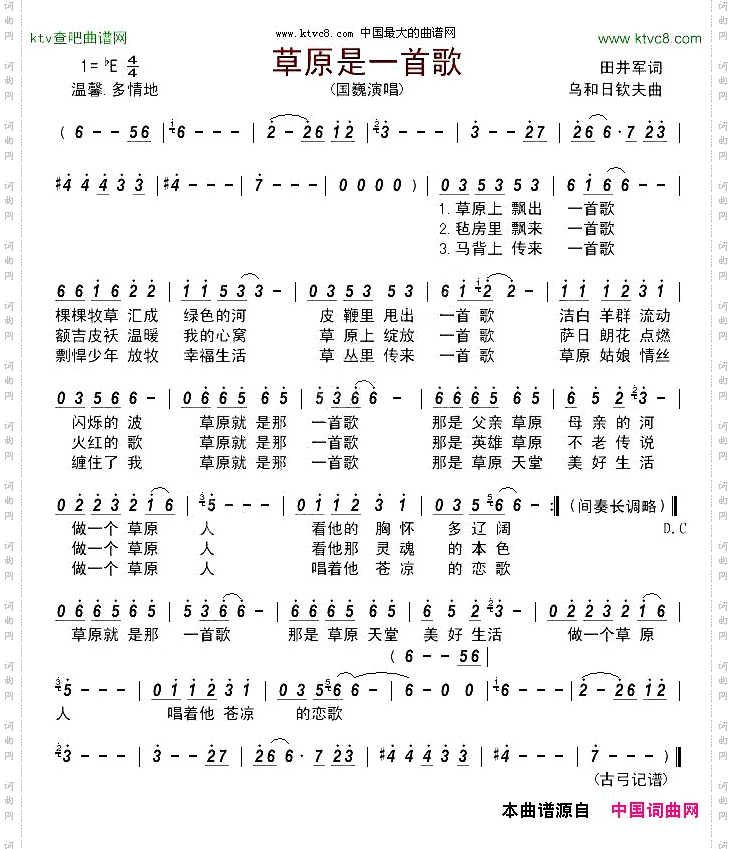 www.ktvc8.com 中国最大的曲谱网
ktv查吧曲谱网
www.ktvc8.com
草原是一首歌
1=♭E 4/4
田井军词
温馨.多情地
(国巍演唱)
乌和日钦夫曲
( 6 - - 56 | 6 - - - | 2 - 26 12 | 3 - - - | 3 - - 27 | 26 6· 7 23 |
#4 4 4 3 3 | #4 - - - | 7 - - - | 0 0 0 0 ) | 03 53 53 | 6 16 6 - - |
1.草原上 飘出 一首歌
2.毡房里 飘来 一首歌
3.马背上 传来 一首歌
66 16 22 | 1 53 3 - | 03 53 53 | 61 2 2 - | 11 12 31 |
棵棵牧草 汇成 绿色的河 皮 鞭里 甩出 一首 歌 洁白 羊群 流动
额吉皮袄 温暖 我的心窝 草 原上 绽放 一首 歌 萨日 朗花 点燃
剽悍少年 放牧 幸福生活 草 丛里 传来 一首 歌 草原 姑娘 情丝
03 56 6 - | 06 65 65 | 5 36 6 - | 06 65 65 | 65 2 3 - |
闪烁的 波 草原就 是那 一首歌 那是 父亲 草原 母 亲的 河
火红的 歌 草原就 是那 一首歌 那是 英雄 草原 不 老传 说
缠住了 我 草原就 是那 一首歌 那是 草原 天堂 美 好生 活
02 23 2 16 | 5 - - - | 01 12 3 1 | 03 5 6 6 - :‖ (间奏长调略)‖
做一个 草原 人 看他的 胸怀 多 辽阔 D.C
做一个 草原 人 看他那 灵魂 的 本色
做一个 草原 人 唱着他 苍凉 的 恋歌
06 65 65 | 5 36 6 - | 06 65 65 | 65 2 3 - | 02 23 2 16 |
草原就 是那 一首歌 那是 草原 天堂 美 好 生活 做一个草 原
( 6 - - 56 |
5 - - - | 01 12 31 | 03 5 6 - - | 6 - 0 0 | 6 - - - | 2 - 26 12 |
人 唱着他 苍凉 的恋歌
3 - - - | 3 - - 27 | 26 6· 7 23 | #4 4 4 3 3 | #4 - - - | 7 - - - ) ‖
(古弓记谱)
本曲谱源自 中国词曲网